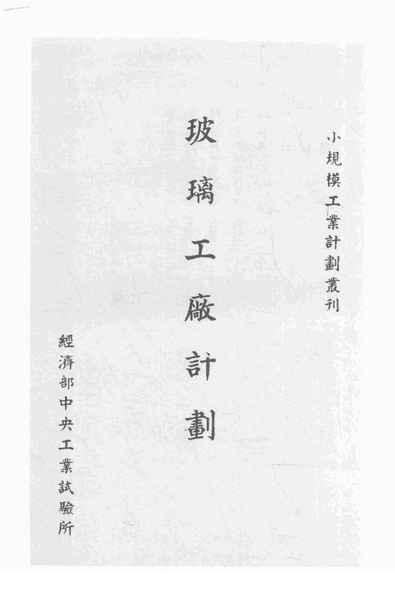 小規模工業計劃叢刊
玻璃工廠計劃
經濟部中央工業試驗所